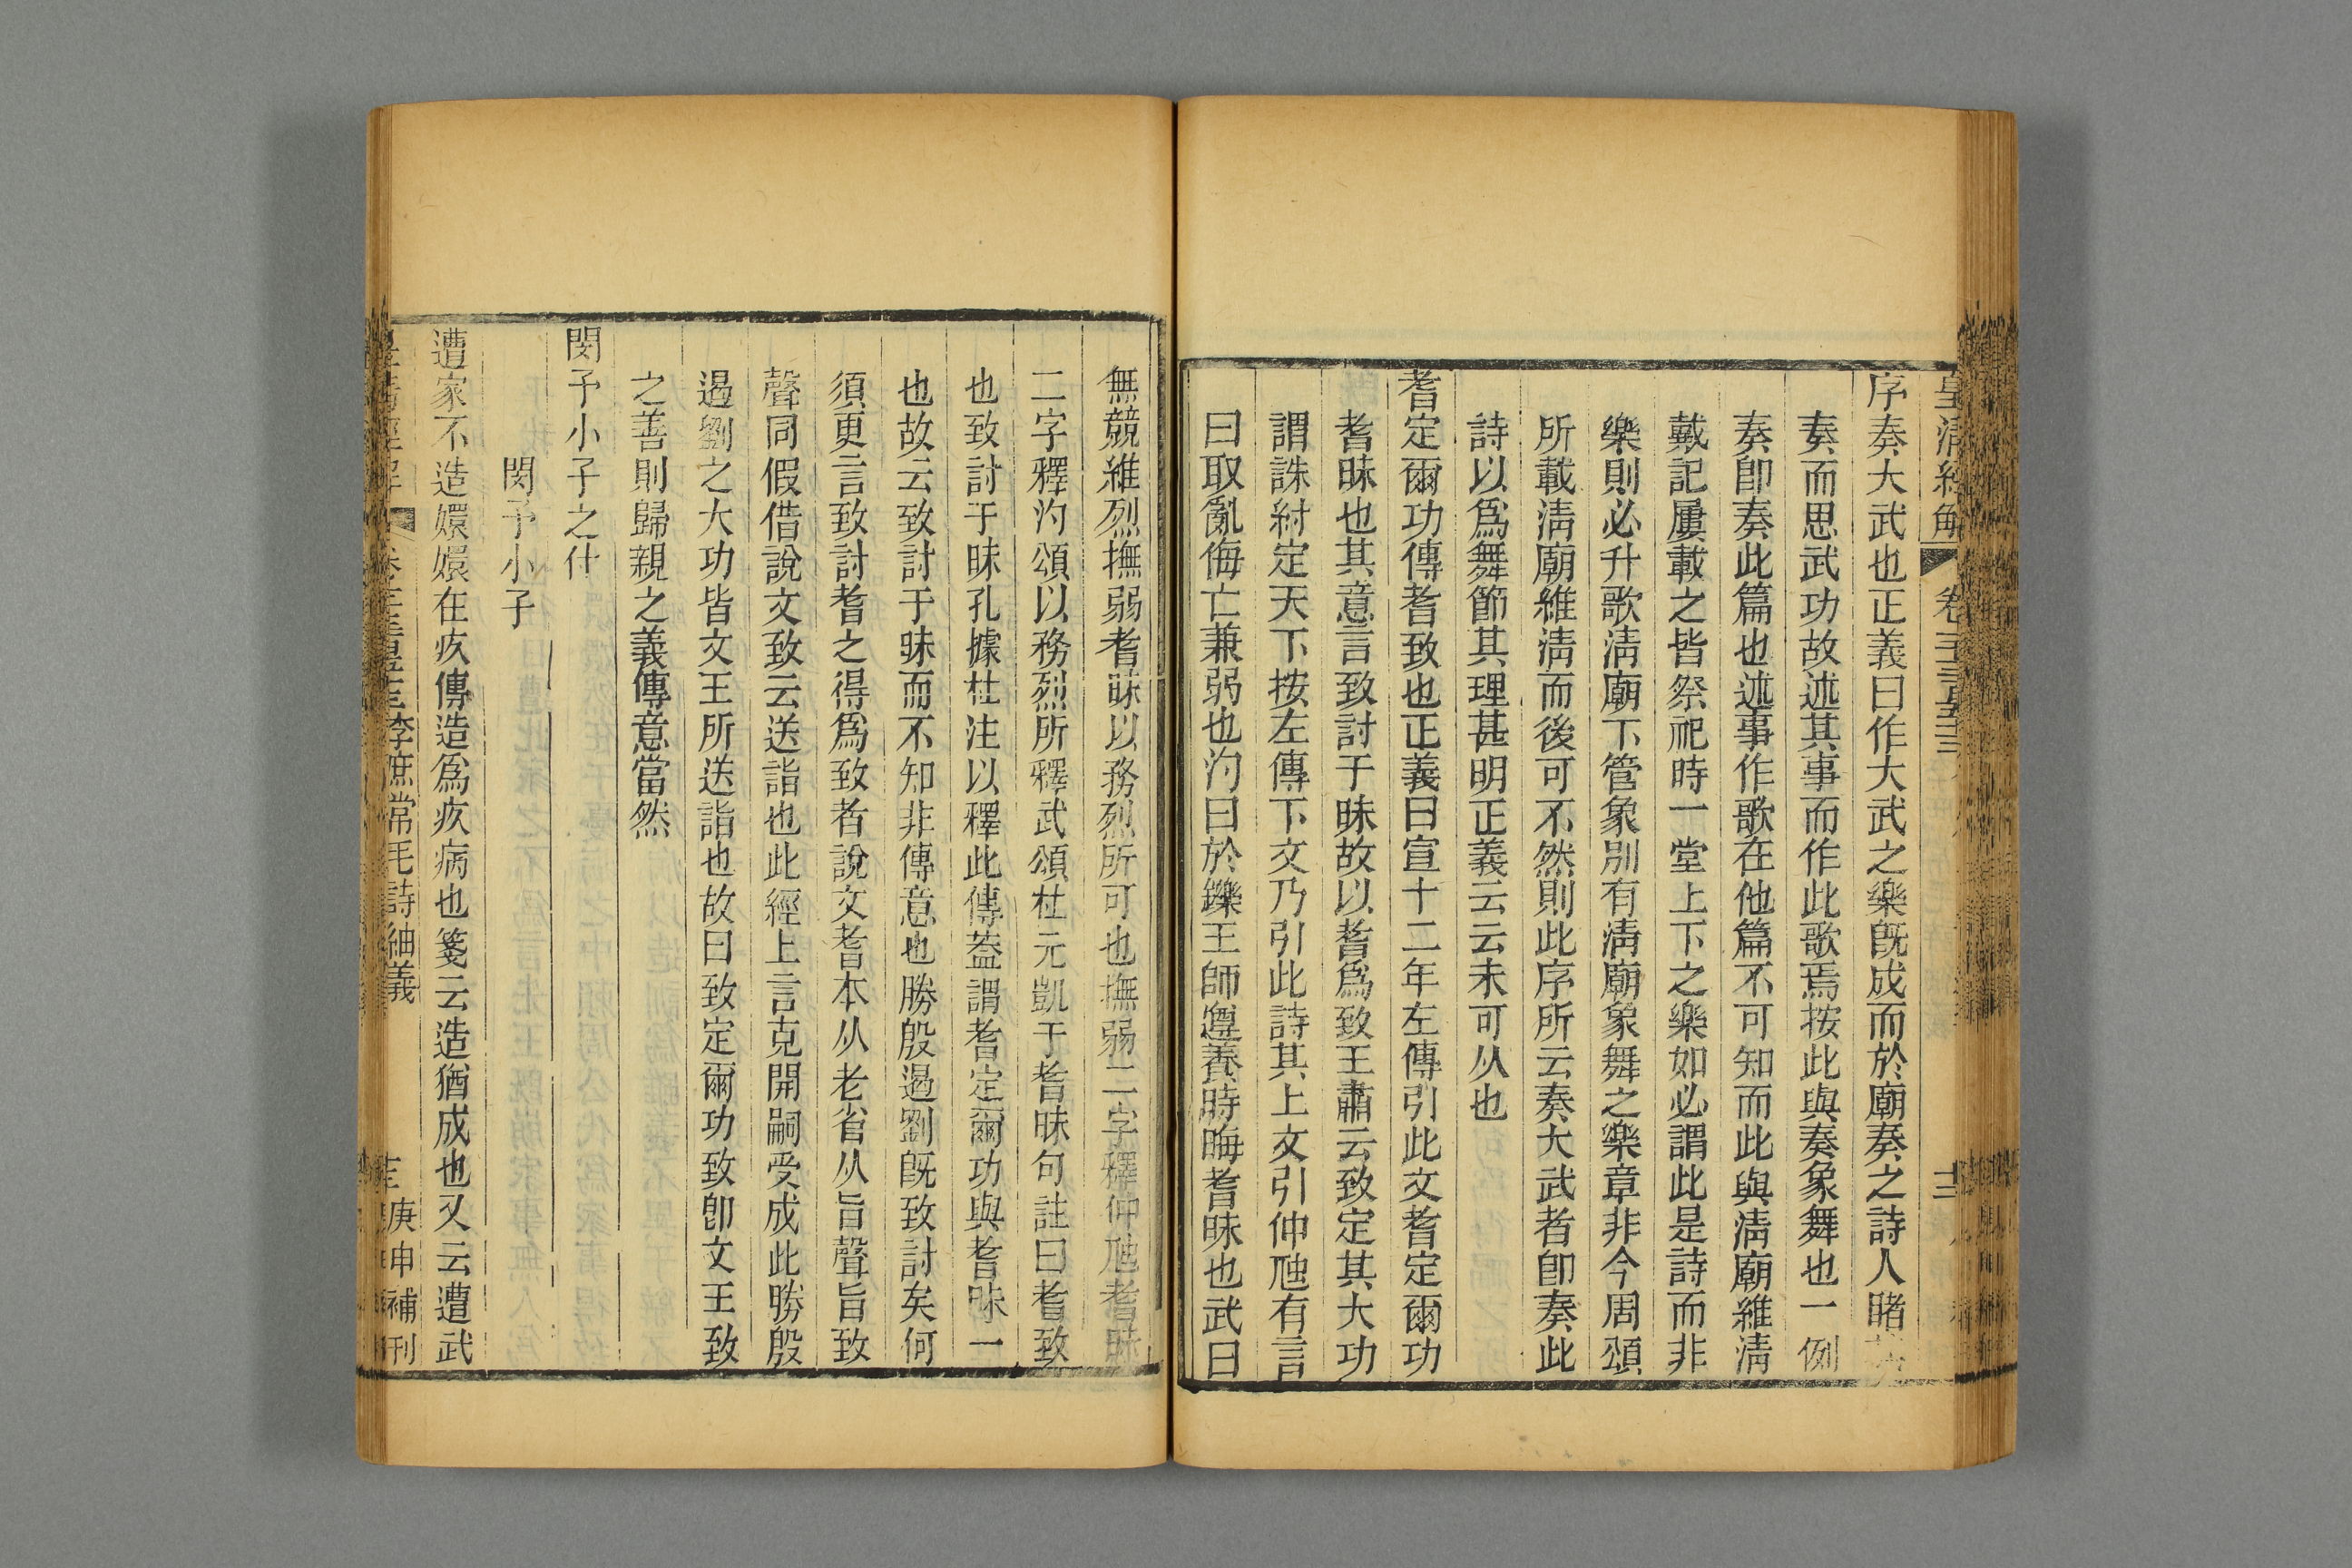 皇清經解
卷一千三百五十三
序奏大武也正義曰作大武之樂旣成而於廟奏之詩人睹其
奏而思武功故述其事而作此歌焉按此與奏象舞也一例
奏卽奏此篇也述事作歌在他篇不可知而此與淸廟維淸
戴記屢載之皆祭祀時一堂上下之樂如必謂此是詩而非
樂則必升歌淸廟下管象別有淸廟象舞之樂章非今周頌
所載淸廟維淸而後可不然則此序所云奏大武者卽奏此
詩以爲舞節其理甚明正義云云未可从也
耆定爾功傳耆致也正義曰宣十二年左傳引此文耆定爾功
耆昧也其意言致討于昧故以耆爲致王肅云致定其大功
謂誅紂定天下按左傳下文乃引此詩其上文引仲虺有言
曰取亂侮亡兼弱也汋曰於鑠王師遵養時晦耆昧也武曰
無競維烈撫弱耆昧以務烈所可也撫弱二字釋仲虺耆昧
二字釋汋頌以務烈所釋武頌杜元凱于耆昧句註曰耆致
也致討于昧孔據杜注以釋此傳葢謂耆定爾功與耆昧一
也故云致討于昧而不知非傳意也勝殷遏劉旣致討矣何
須更言致討耆之得爲致者說文耆本从老省从旨聲旨致
聲同假借說文致云送詣也此經上言克開嗣受成此勝殷
遏劉之大功皆文王所送詣也故曰致定爾功致卽文王致
之善則歸親之義傳意當然
閔予小子之什
閔予小子
遭家不造嬛嬛在疚傳造爲疚病也箋云造猶成也又云遭武
李庶常毛詩紬義
庚申補刊